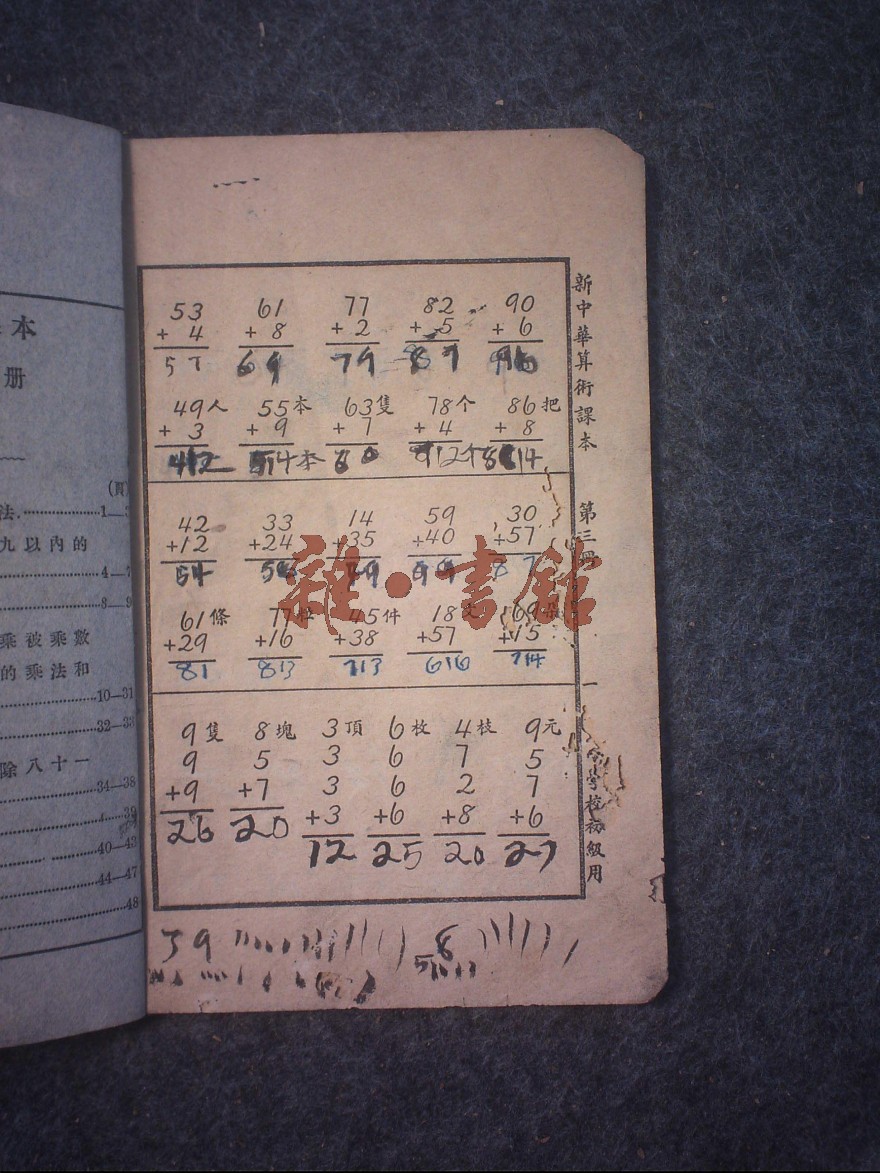 本
册
(頁)
法.……1—3
九以內的
……4—7
……8—9
乘被乘數
的乘法和
……10—31
……32—33
除八十一
……34—38
……39
……40—43
……44—47
……48
53 61 77 82 90
+ 4 + 8 + 2 + 5 + 6
57 69 79 87 96
49人 55本 63隻 78个 86把
+ 3 + 9 + 7 + 4 + 8
412 514本 60 712个 814
42 33 14 59 30
+12 +24 +35 +40 +57
54 49 99 87
61條 77 45件 18 69
+29 +16 +38 +57 +15
81 813 713 616 714
9隻 8塊 3頂 6枚 4枝 9元
9 5 3 6 7 5
+9 +7 3 6 2 7
26 20 +3 +6 +8 +6
12 25 20 27
新中華算術課本 第三冊 一 學校初級用
雜·書館